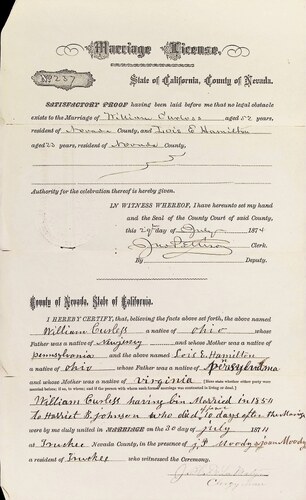 Marriage License.
No 257
State of California, County of Nevada.
SATISFACTORY PROOF having been laid before me that no legal obstacle
exists to the Marriage of William Curless aged 52 years,
resident of Nevada County, and Lois E Hamilton
aged 33 years, resident of Nevada County.
Authority for the celebration thereof is hereby given.
IN WITNESS WHEREOF, I have hereunto set my hand
and the Seal of the County Court of said County,
this 29th day of July 1874
Clerk.
By Deputy.
County of Nevada, State of California.
I HEREBY CERTIFY, that, believing the facts above set forth, the above named
William Curless a native of ohio whose
Father was a native of New jersey and whose Mother was a native of
pennsylvania and the above named Lois E. Hamilton
a native of ohio whose Father was a native of pensylvania
and whose Mother was a native of virginia
William Curless having bin Married in 1854
to Harriet B. Johnson who died 10 days after the Marriage
were by me duly united in MARRIAGE on the 30 day of july 1874
at Truckee Nevada County, in the presence of J. P Moody & joan Moody
a resident of Truckee who witnessed the Ceremony.
Clergyman